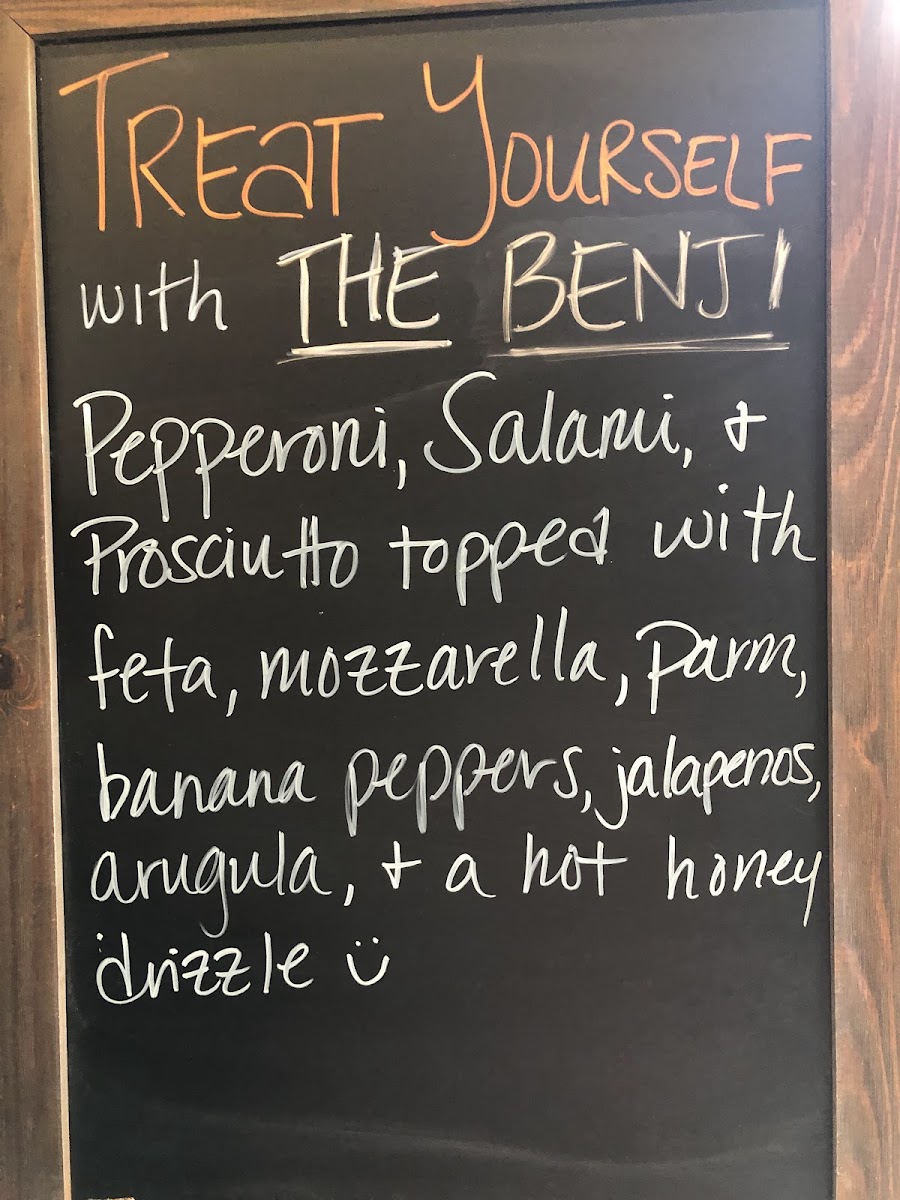 TREAT YOURSELF
with THE BENJI
Pepperoni, Salami, +
Prosciutto topped with
feta, mozzarella, parm,
banana peppers, jalapenos,
arugula, + a hot honey
drizzle ü